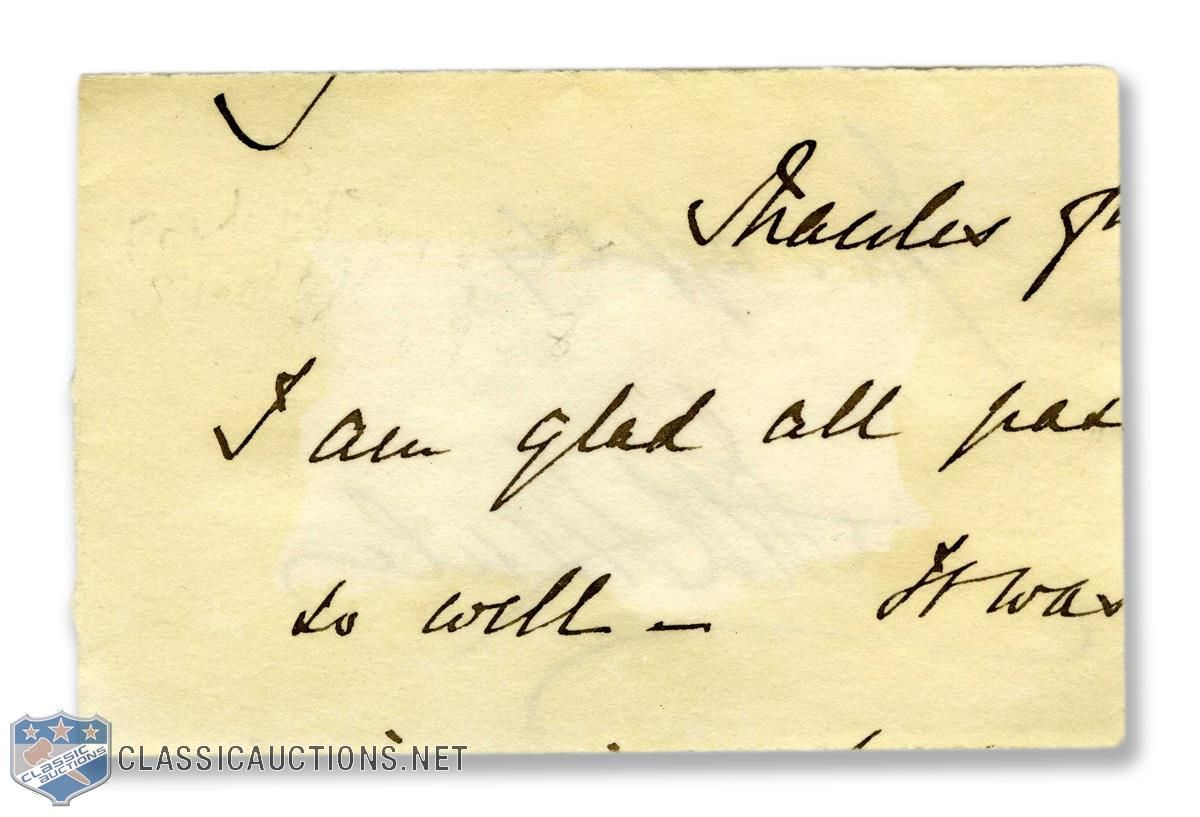 Thanks
I am glad all pas
so well – It was
CLASSIC AUCTIONS
CLASSICAUCTIONS.NET